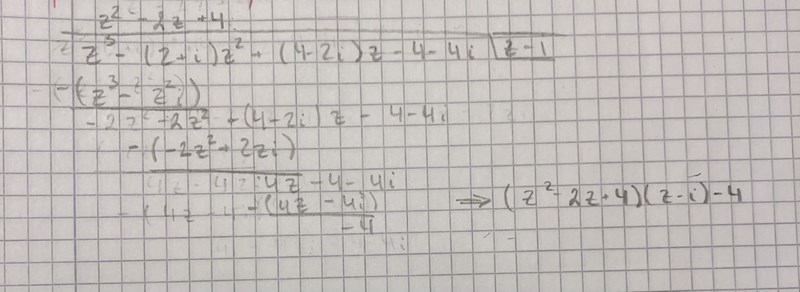 z² - 2z + 4
z³ - (2+i)z² + (4-2i)z - 4 - 4i | z - i
-(z³ - z²i)
-2z² + (4-2i)z - 4-4i
-(-2z² + 2zi)
4z - 4 - 4i
-(4z - 4i)
-4
⇒ (z² - 2z + 4)(z - i) - 4